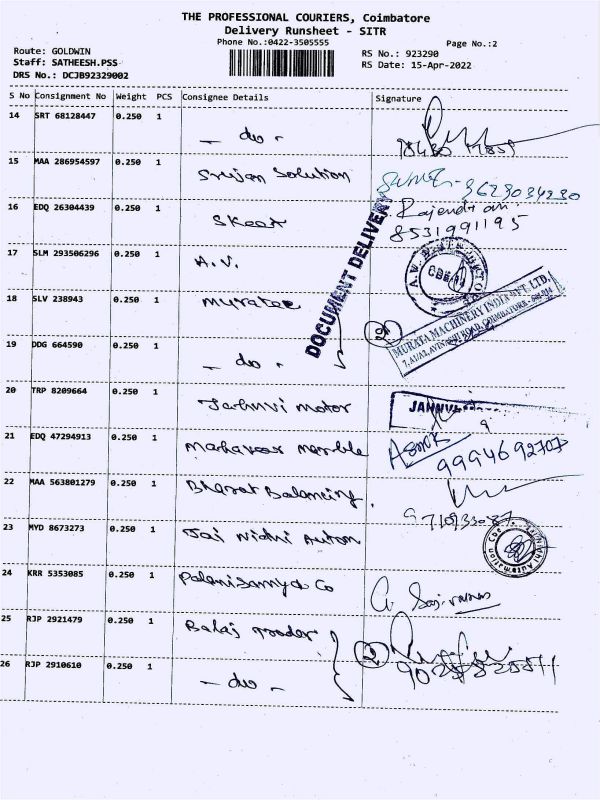 THE PROFESSIONAL COURIERS, Coimbatore
Delivery Runsheet - SITR
Phone No.:0422-3505555
Page No.:2
Route: GOLDWIN
Staff: SATHEESH.PSS
DRS No.: DCJB92329002
RS No.: 923290
RS Date: 15-Apr-2022
S No Consignment No Weight PCS Consignee Details Signature
14 SRT 68128447 0.250 1 - do -
15 MAA 286954597 0.250 1 Srujan Solution
16 EDQ 26304439 0.250 1 Skeet Rajendran
8531991195
17 SLM 293506296 0.250 1 A.V.
DOCUMENT DELIVERY
18 SLV 238943 0.250 1 muratec
MURATA MACHINERY INDIA PVT. LTD.
19 DDG 664590 0.250 1 - do -
20 TRP 8209664 0.250 1 Jahnvi motor
21 EDQ 47294913 0.250 1 mahaveer marble
9994692707
22 MAA 563801279 0.250 1 Bharat Balancing
23 MYD 8673273 0.250 1 Jai Nidhi Autom
24 KRR 5353085 0.250 1 Palanisamya Co
25 RJP 2921479 0.250 1 Balaj 2
26 RJP 2910610 0.250 1 - do -